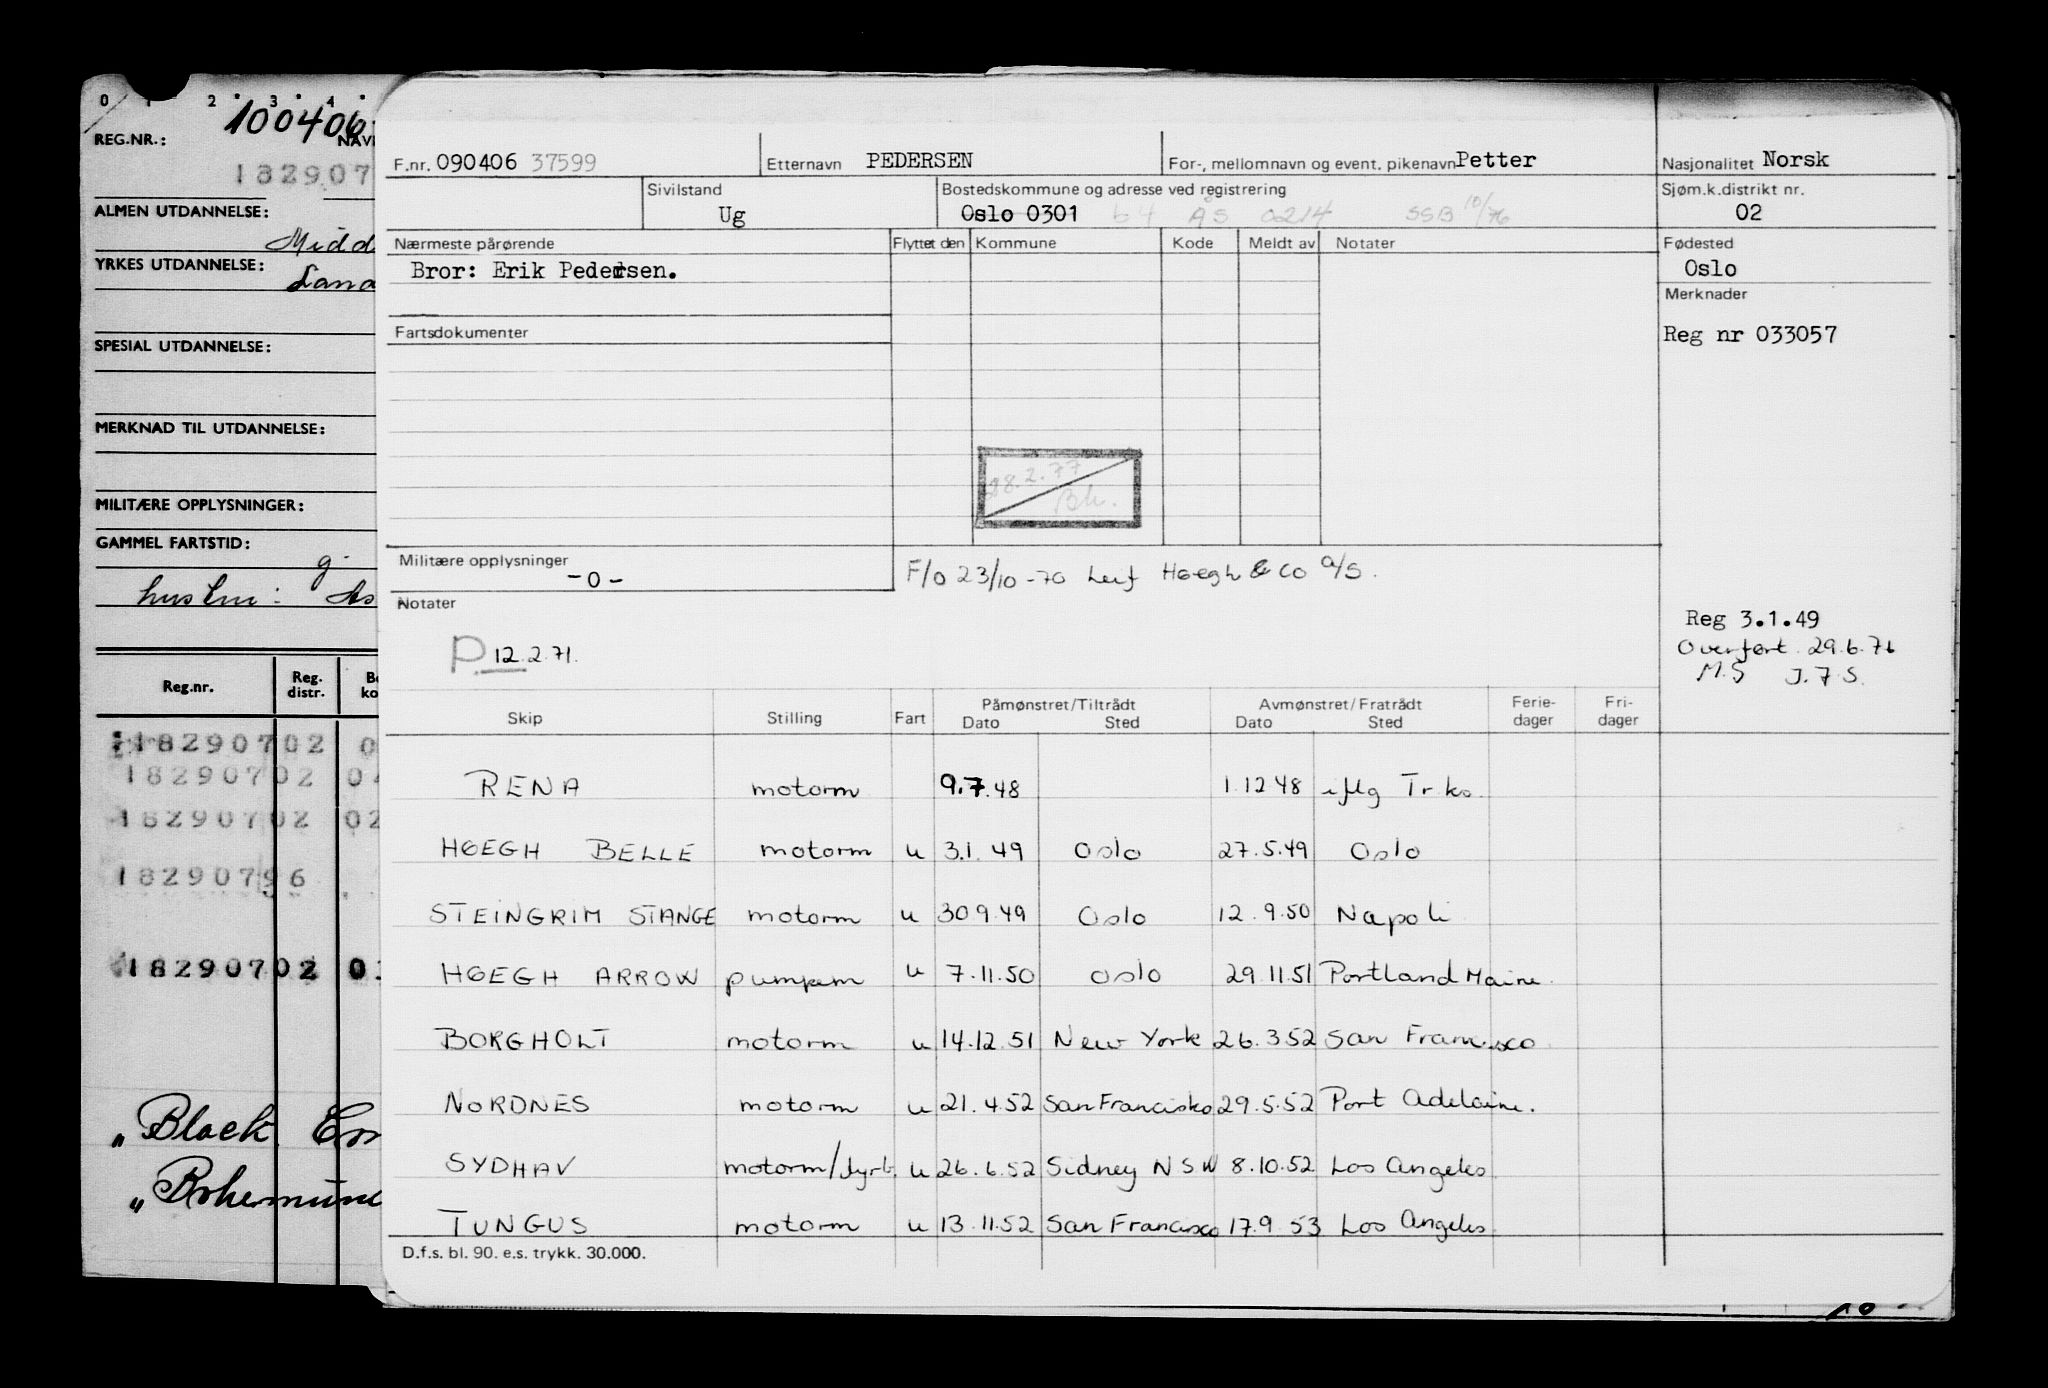 0 1 2 3 4
REG.NR.: 100406 NAV
182907
ALMEN UTDANNELSE:
Midd
YRKES UTDANNELSE:
SPESIAL UTDANNELSE:
MERKNAD TIL UTDANNELSE:
MILITÆRE OPPLYSNINGER:
GAMMEL FARTSTID:
Reg.nr. Reg. distr. Be ko
182907 02 0
182907 02 04
182907 02 02
182907 96
182907 02 0
"Black
F.nr. 090406 37599 Etternavn PEDERSEN For-, mellomnavn og event. pikenavn Petter Nasjonalitet Norsk
Sivilstand Ug Bostedskommune og adresse ved registrering Oslo 0301 64 ÅS 0214 SSB 10/76 Sjøm.k.distrikt nr. 02
Nærmeste pårørende Flyttet den Kommune Kode Meldt av Notater Fødested
Bror: Erik Pedersen. Oslo
Merknader
Fartsdokumenter Reg nr 033057
28.2.77
Bh.
Militære opplysninger -0- F/o 23/10-70 Leif Høegh & Co A/S.
Notater
Reg 3.1.49
P 12.2.71. Overført 29.6.76
M.S J.F.S.
Skip Stilling Fart Påmønstret/Tiltrådt Dato Sted Avmønstret/Fratrådt Dato Sted Ferie-dager Fri-dager
RENA motorm 9.7.48 1.12 48 iflg Tr.ko.
HØEGH BELLE motorm u 3.1.49 Oslo 27.5.49 Oslo
STEINGRIM STANGE motorm u 30 9.49 Oslo 12.9.50 Napoli
HØEGH ARROW pumpem u 7.11.50 Oslo 29.11.51 Portland Maine.
BORGHOLT motorm u 14.12.51 New York 26.3.52 San Francisco
NORDNES motorm u 21.4.52 San Francisko 29.5.52 Port Adelaine.
SYDHAV motorm/ u 26.6.52 Sidney NSW 8.10.52 Los Angeles
TUNGUS motorm u 13.11.52 San Francisco 17.9.53 Los Angeles.
D.f.s. bl. 90. e.s. trykk. 30.000.